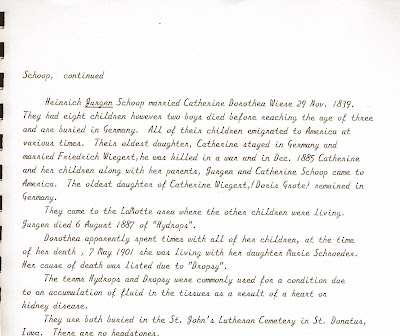 Schoop, continued
Heinrich Jurgen Schoop married Catherine Dorothea Wiese 29 Nov. 1839.
They had eight children however two boys died before reaching the age of three
and are buried in Germany. All of their children emigrated to America at
various times. Their oldest daughter, Catherine stayed in Germany and
married Friedrich Wiegert,he was killed in a war and in Dec. 1885 Catherine
and her children along with her parents, Jurgen and Catherine Schoop came to
America. The oldest daughter of Catherine Wiegert,(Doris Grote) remained in
Germany.
They came to the LaMotte area where the other children were living.
Jurgen died 6 August 1887 of "Hydrops".
Dorothea apparently spent times with all of her children, at the time
of her death , 7 May 1901 she was living with her daughter Marie Schroeder.
Her cause of death was listed due to "Dropsy".
The terms Hydrops and Dropsy were commonly used for a condition due
to an accumulation of fluid in the tissues as a result of a heart or
kidney disease.
They are both buried in the St. John's Lutheran Cemetery in St. Donatus,
Iowa. There are no headstones.